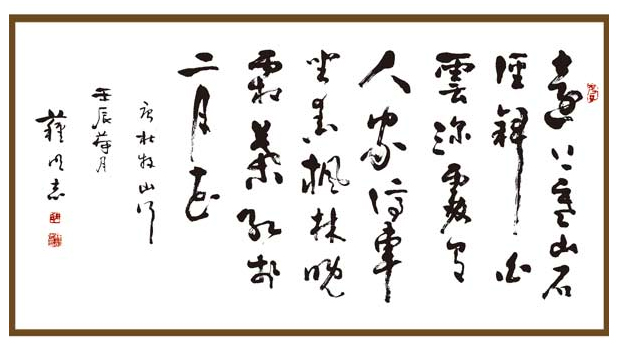 遠上寒山石
徑斜白
雲深處有
人家停車
坐愛楓林晚
霜葉紅於
二月花
唐杜牧山行
壬辰荷月